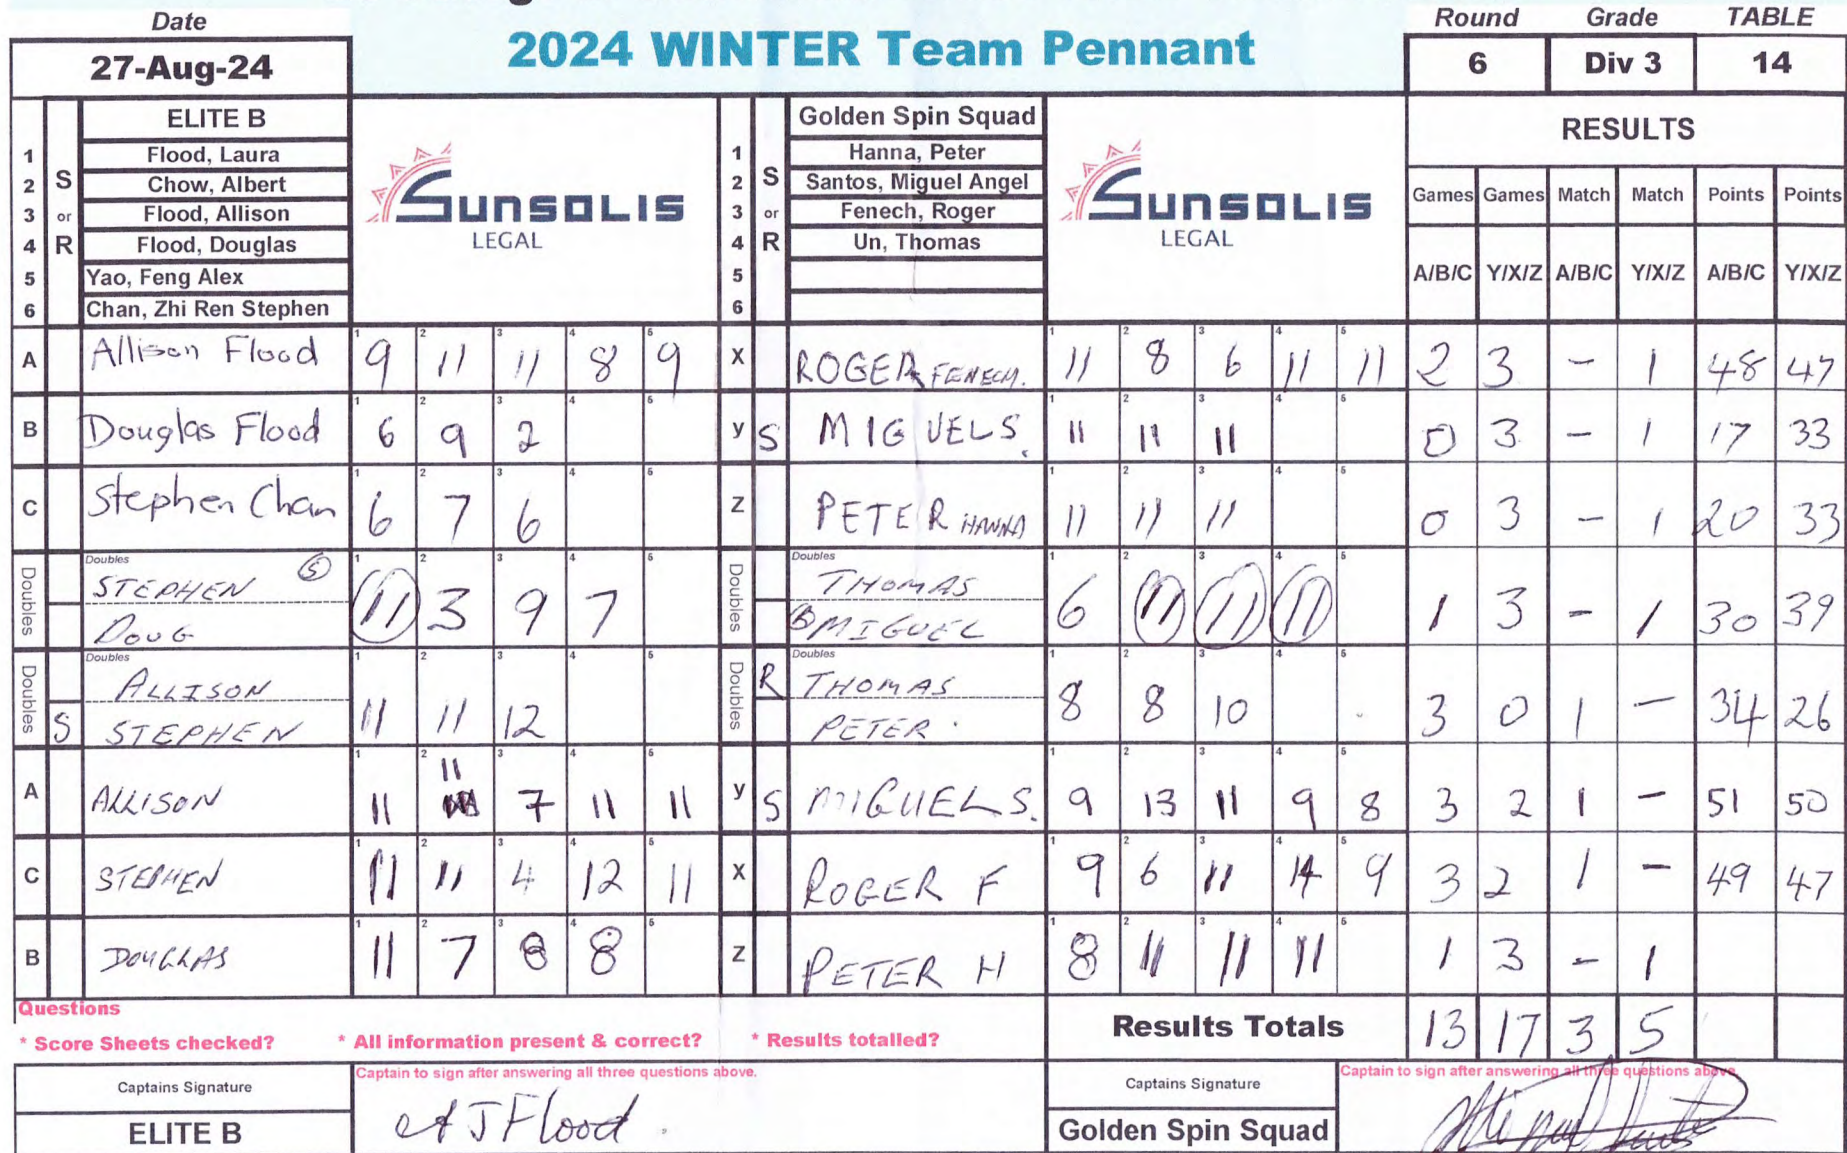 Date
2024 WINTER Team Pennant
Round Grade TABLE
27-Aug-24
6 Div 3 14
1 2 3 4 5 6
S or R
ELITE B
Flood, Laura
Chow, Albert
Flood, Allison
Flood, Douglas
Yao, Feng Alex
Chan, Zhi Ren Stephen
SUNSOLIS
LEGAL
1 2 3 4 5 6
S or R
Golden Spin Squad
Hanna, Peter
Santos, Miguel Angel
Fenech, Roger
Un, Thomas
SUNSOLIS
LEGAL
RESULTS
Games Games Match Match Points Points
A/B/C Y/X/Z A/B/C Y/X/Z A/B/C Y/X/Z
A Allison Flood 9 11 11 8 9 X ROGER FENECH. 11 8 6 11 11 2 3 - 1 48 47
B Douglas Flood 6 9 2 y S MIGUEL S. 11 11 11 0 3 - 1 17 33
C Stephen Chan 6 7 6 Z PETER HANNA 11 11 11 0 3 - 1 20 33
Doubles Doubles STEPHEN S DOUG 11 3 9 7 Doubles Doubles THOMAS MIGUEL 6 11 11 11 1 3 - 1 30 39
Doubles S Doubles ALLISON STEPHEN 11 11 12 Doubles R Doubles THOMAS PETER 8 8 10 3 0 1 - 34 26
A ALLISON 11 11 7 11 11 y S MIGUEL S. 9 13 11 9 8 3 2 1 - 51 50
C STEPHEN 11 11 4 12 11 X ROGER F 9 6 11 14 9 3 2 1 - 49 47
B DOUGLAS 11 7 8 8 Z PETER H 8 11 11 11 1 3 - 1
Questions
* Score Sheets checked? * All information present & correct? * Results totalled?
Results Totals 13 17 3 5
Captains Signature
Captain to sign after answering all three questions above.
ELITE B
A J Flood
Captains Signature
Captain to sign after answering all three questions above.
Golden Spin Squad